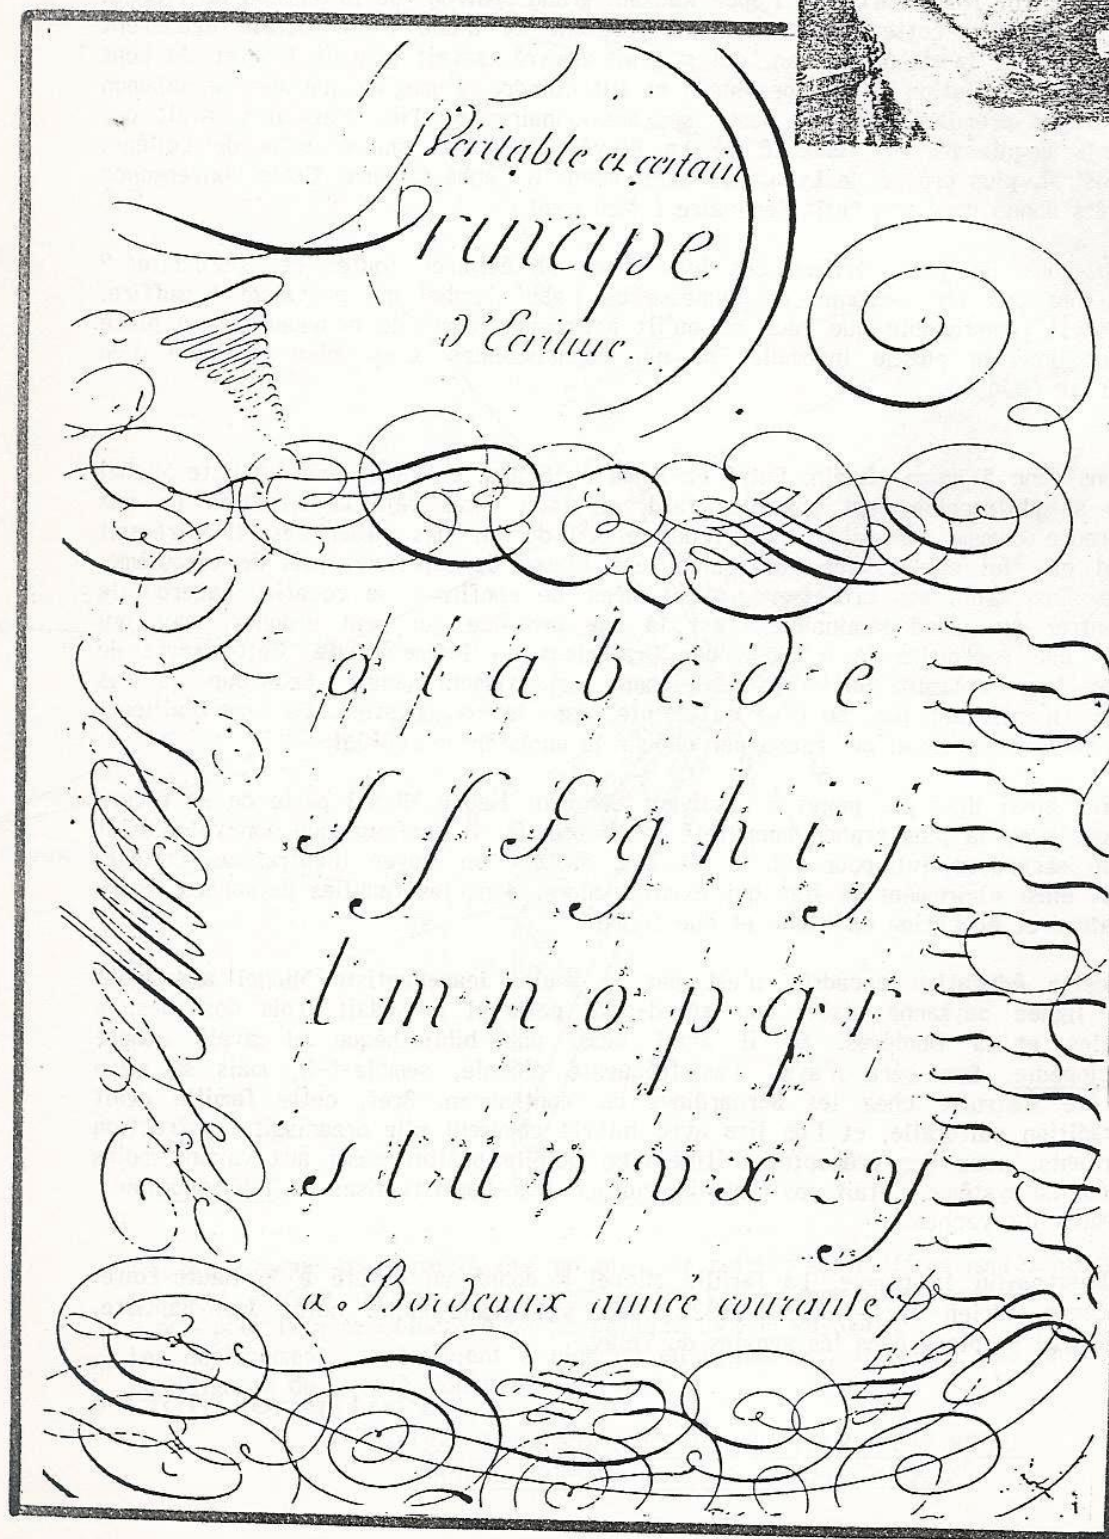 Veritable et certain
Principe
d'Ecriture.
o i a b c d e
s ſ f g h i j
l m n o p q r
s t u v v x y
a Bordeaux année courante